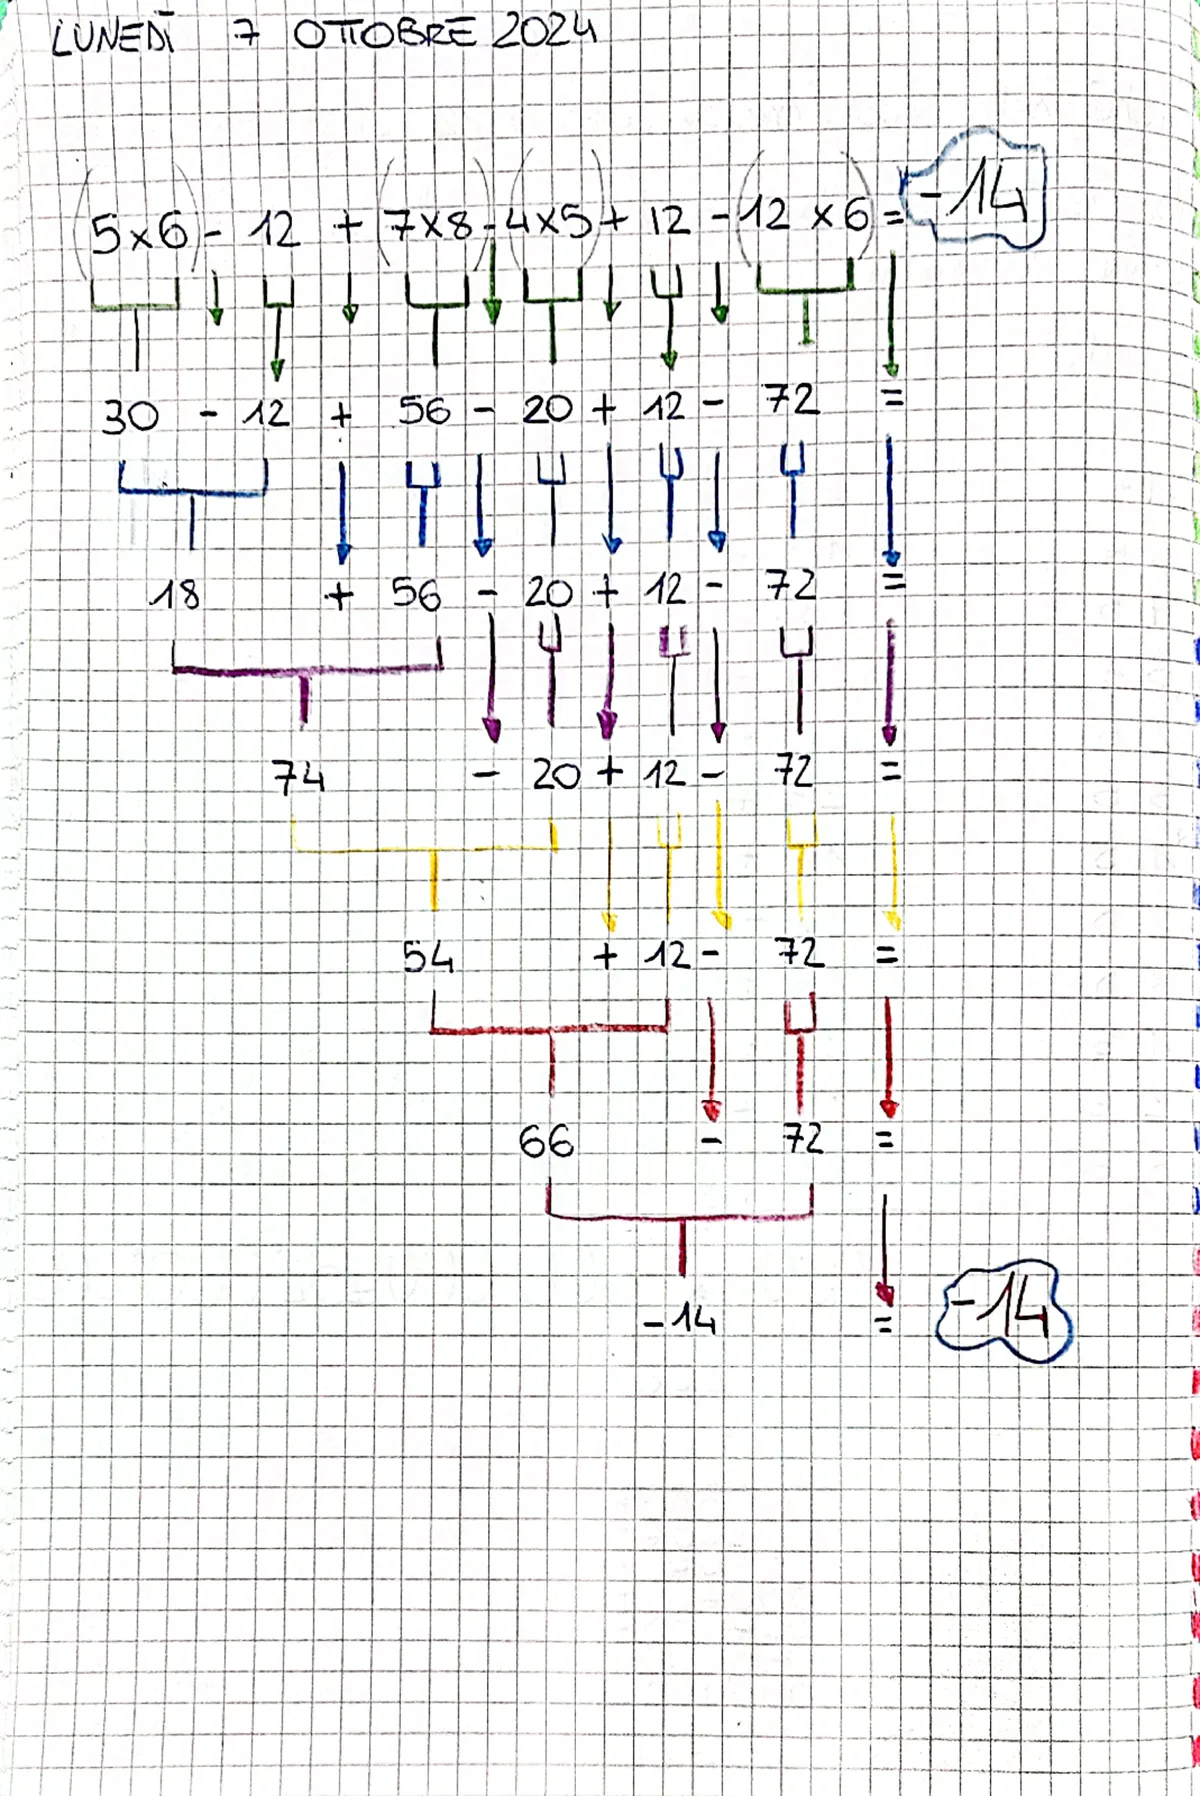 LUNEDÌ 7 OTTOBRE 2024
(5x6) - 12 + (7x8) - (4x5) + 12 - (12 x6) = -14
30 - 12 + 56 - 20 + 12 - 72 =
18 + 56 - 20 + 12 - 72 =
74 - 20 + 12 - 72 =
54 + 12 - 72 =
66 - 72 =
-14 = -14